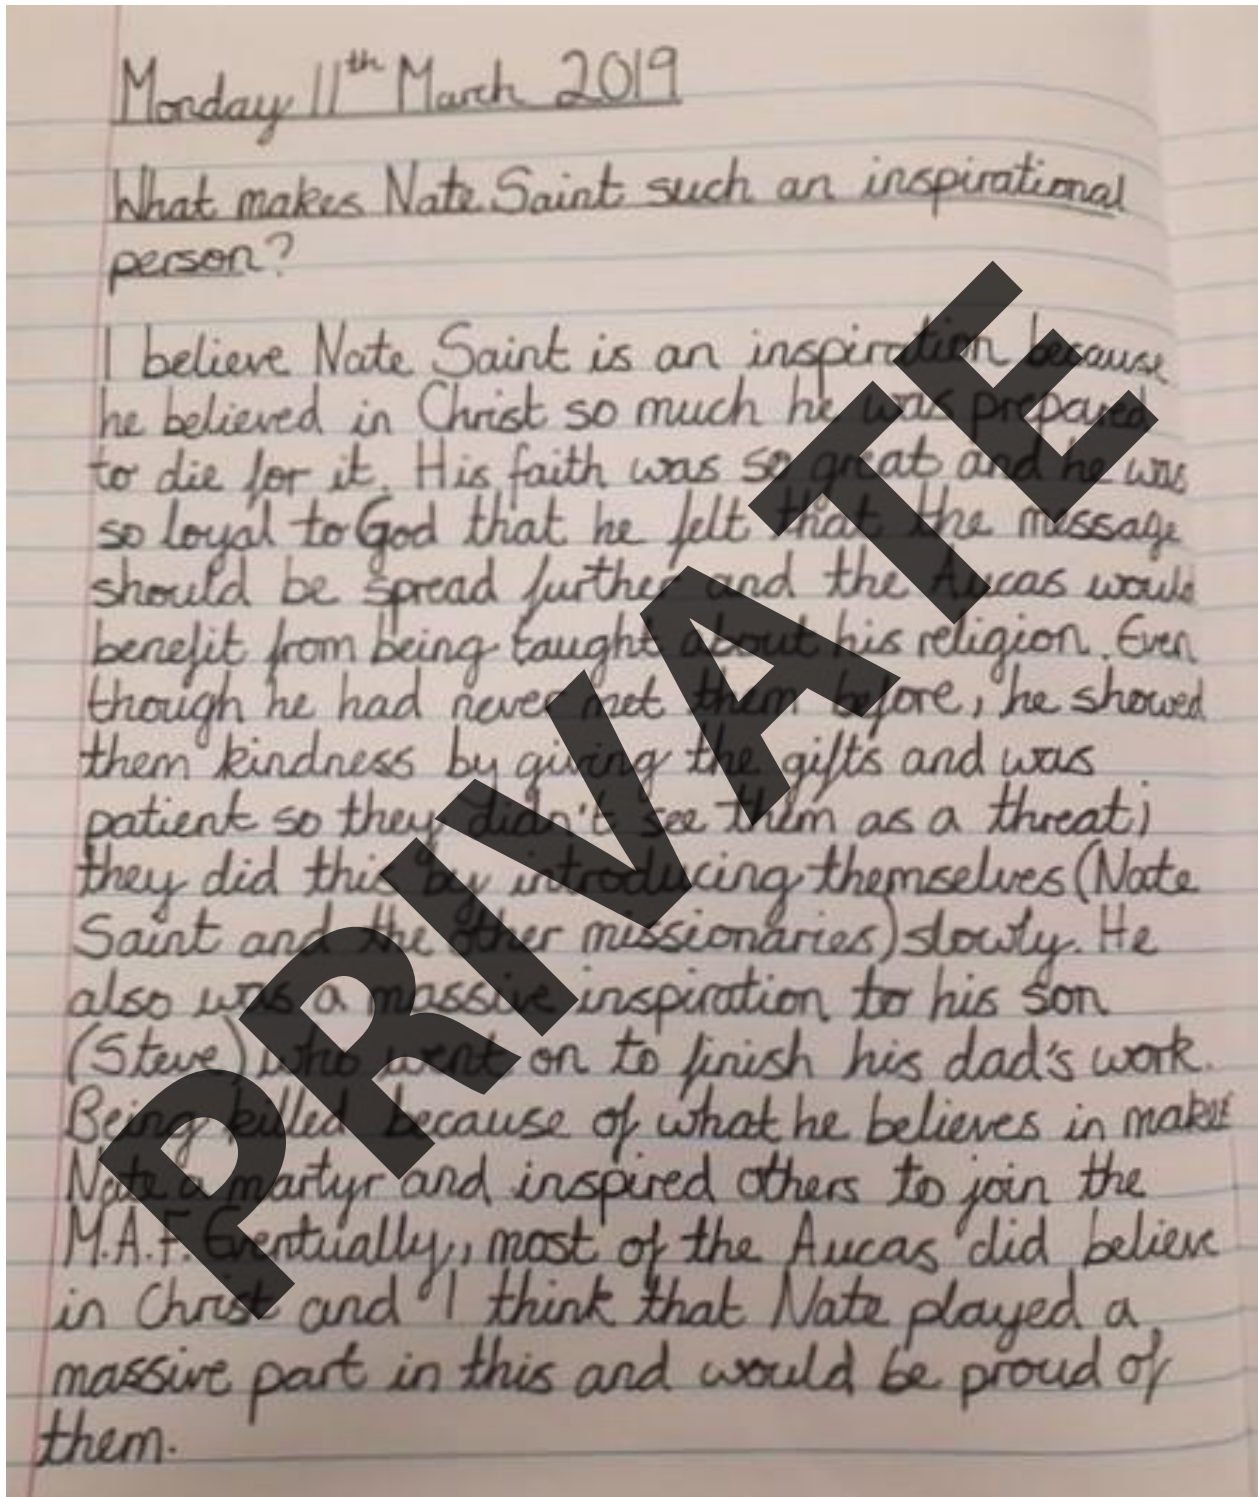 Monday 11th March 2019
What makes Nate Saint such an inspirational
person?
I believe Nate Saint is an inspiration because
he believed in Christ so much he was prepared
to die for it. His faith was so great and he was
so loyal to God that he felt that the message
should be spread further and the Aucas would
benefit from being taught about his religion. Even
though he had never met them before, he showed
them kindness by giving the gifts and was
patient so they didn't see them as a threat;
they did this by introducing themselves (Nate
Saint and the other missionaries) slowly. He
also was a massive inspiration to his son
(Steve) who went on to finish his dad's work.
Being killed because of what he believes in makes
Nate a martyr and inspired others to join the
M.A.F. Eventually, most of the Aucas did believe
in Christ and I think that Nate played a
massive part in this and would be proud of
them.
PRIVATE